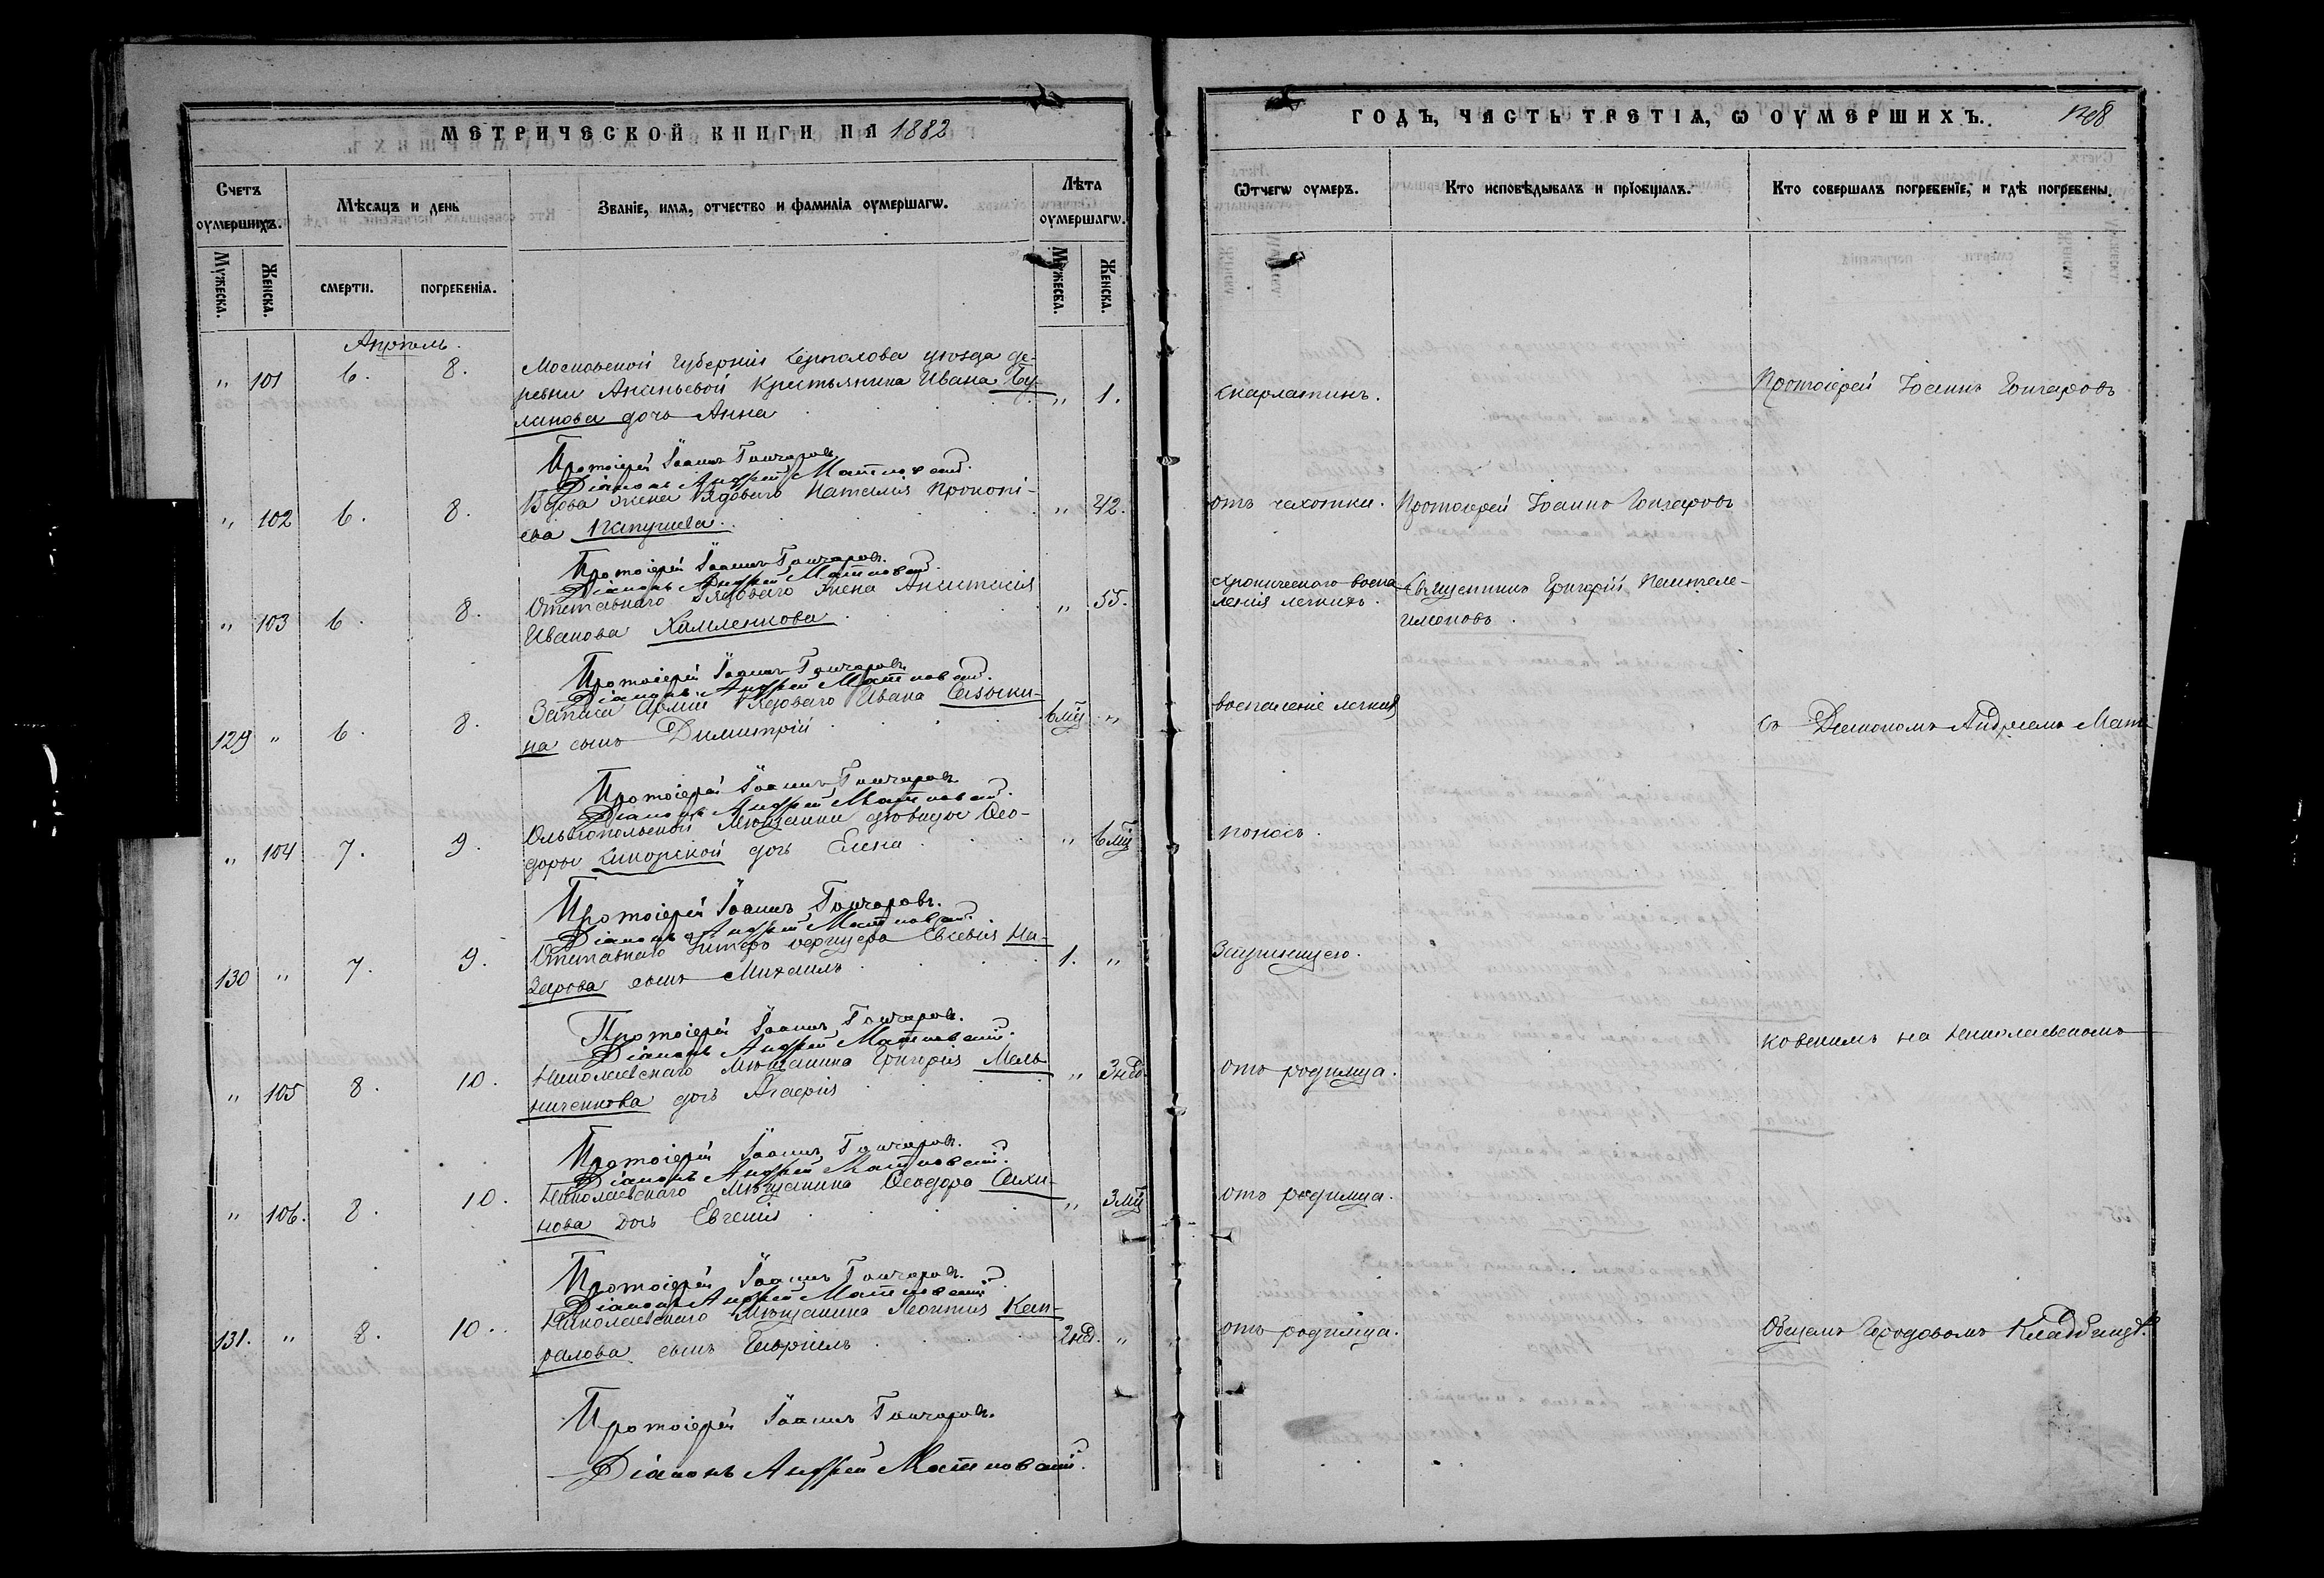 МЕТРИЧЕСКОЙ КНИГИ НА 1882
ГОДЪ, ЧАСТЬ ТРЕТІѦ, Ѡ ОУМЕРШИХЪ.
Счетъ оумершихъ.
Мѣсяцъ и день
Званіе, имѧ, отчество и фамилія оумершагѡ.
Лѣта оумершагѡ.
Ѿтчегѡ оумеръ.
Кто исповѣдывалъ и пріобщалъ.
Кто совершалъ погребеніе, и гдѣ погребены.
Мужеска.
Женска.
смерти.
погребеніѧ.
Мужеска.
Женска.
Апрѣль.
" 101 6. 8. Московской Губерніи Серпухова уѣзда де-
ревни Ананьевой Крестьянина Ивана Бу-
ланова дочь Анна " 1. Скарлатинъ. Протоіерей Іоаннъ Гончаровъ
Протоіерей Іоаннъ Гончаровъ.
Діаконъ Андрей Матковскій.
" 102 6. 8. Вдова жена Рядового Наталія Прокопі-
ева " 42. отъ чахотки. Протоіерей Іоаннъ Гончаровъ
Протоіерей Іоаннъ Гончаровъ.
Діаконъ Андрей Матковскій.
" 103 6. 8. Отставнаго Рядоваго жена Анастасія
Иванова Хамленкова " 55. хроническаго воспа-
ленія легкихъ. Священникъ Григорій Пантеле-
имоновъ.
Протоіерей Іоаннъ Гончаровъ.
Діаконъ Андрей Матковскій.
129 " 6. 8. Запаса Арміи Рядоваго Ивана Сазыки-
на сынъ Димитрій 6 мц " воспаленіе легкихъ съ Діакономъ Андреемъ Мат-
Протоіерей Іоаннъ Гончаровъ
Діаконъ Андрей Матковскій.
" 104 7. 9. Ольвіопольской Мѣщанки дѣвицы Ѳео-
доры Сикорской дочь Елена " 6 мц поносъ.
Протоіерей Іоаннъ Гончаровъ.
Діаконъ Андрей Матковскій.
130 " 7. 9. Отставнаго Унтеръ офицера Евсевія На-
зарова сынъ Михаилъ 1. "
Протоіерей Іоаннъ Гончаровъ.
Діаконъ Андрей Матковскій.
" 105 8. 10. Николаевскаго Мѣщанина Григорія Мель-
ниченкова дочь Агафія " 3 нед. отъ родимца. ковскимъ на Николаевскомъ
Протоіерей Іоаннъ Гончаровъ.
Діаконъ Андрей Матковскій.
" 106. 8. 10. Николаевскаго Мѣщанина Ѳеодора Сахи-
нова дочь Евгенія " 3 мц отъ родимца.
Протоіерей Іоаннъ Гончаровъ.
Діаконъ Андрей Матковскій
131. " 8. 10. Николаевскаго Мѣщанина Леонтія
сынъ Гавріилъ 2 нед. " отъ родимца. Общемъ Городовомъ Кладбищѣ.
Протоіерей Іоаннъ Гончаровъ.
Діаконъ Андрей Матковскій.